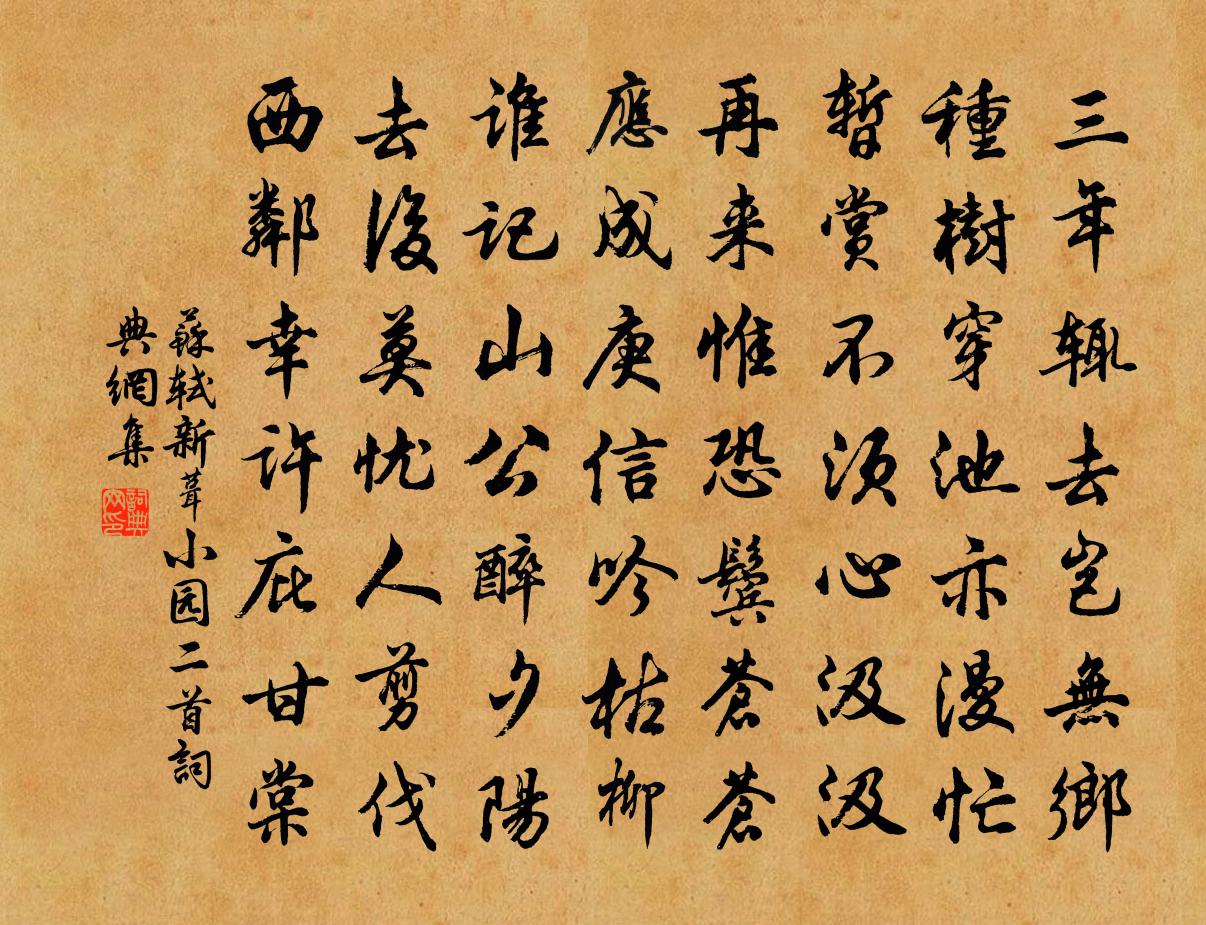 三年辄去岂無鄉
種樹穿池亦漫忙
暫賞不須心汲汲
再来惟恐鬓蒼蒼
應成庚信吟枯柳
谁記山公醉夕陽
去後莫忧人剪伐
西鄰幸許庇甘棠
蘇轼新葺小园二首詞
典網集
詞典
网印